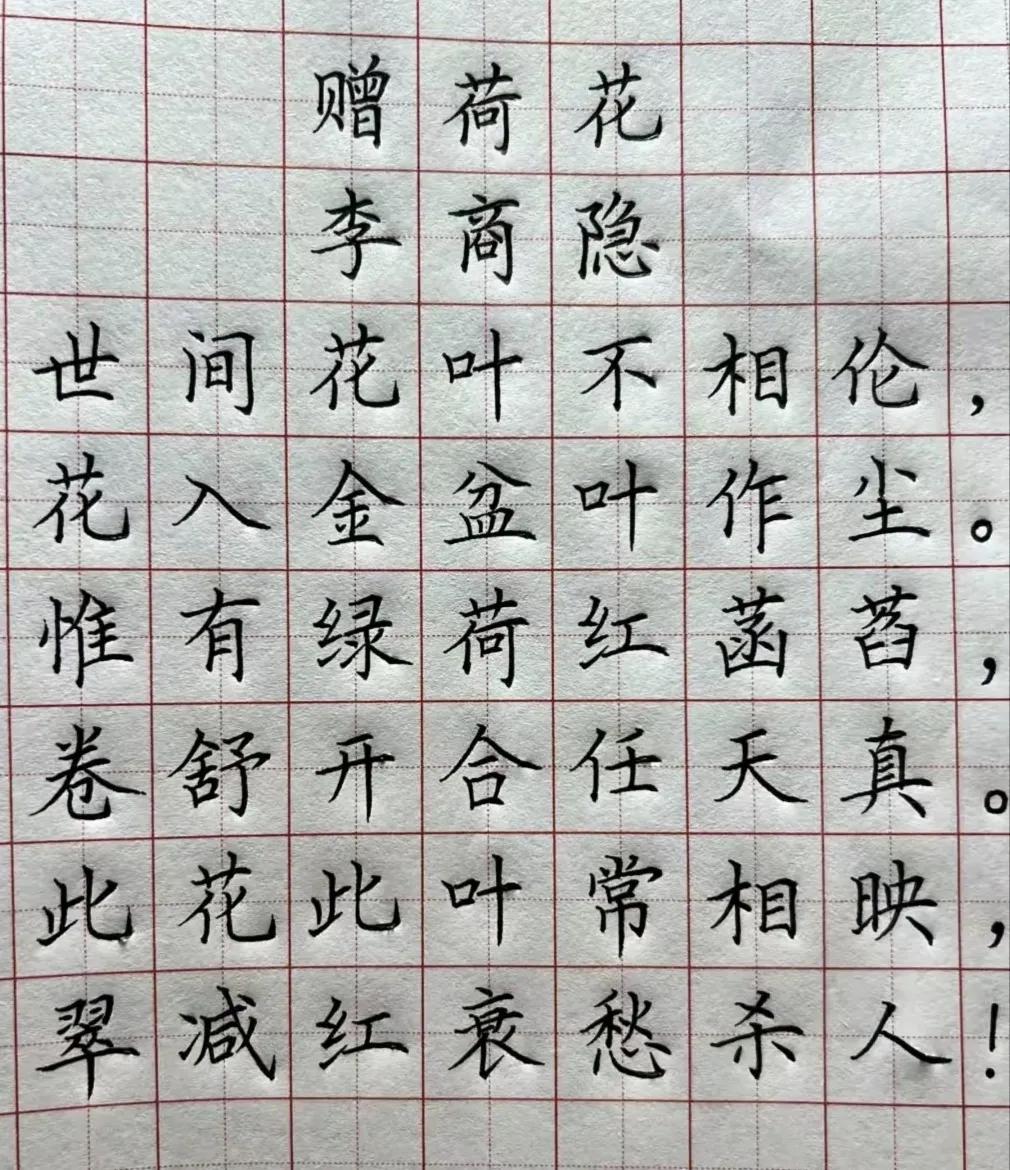 赠荷花
李商隐
世间花叶不相伦，
花入金盆叶作尘。
惟有绿荷红菡萏，
卷舒开合任天真。
此花此叶常相映，
翠减红衰愁杀人！